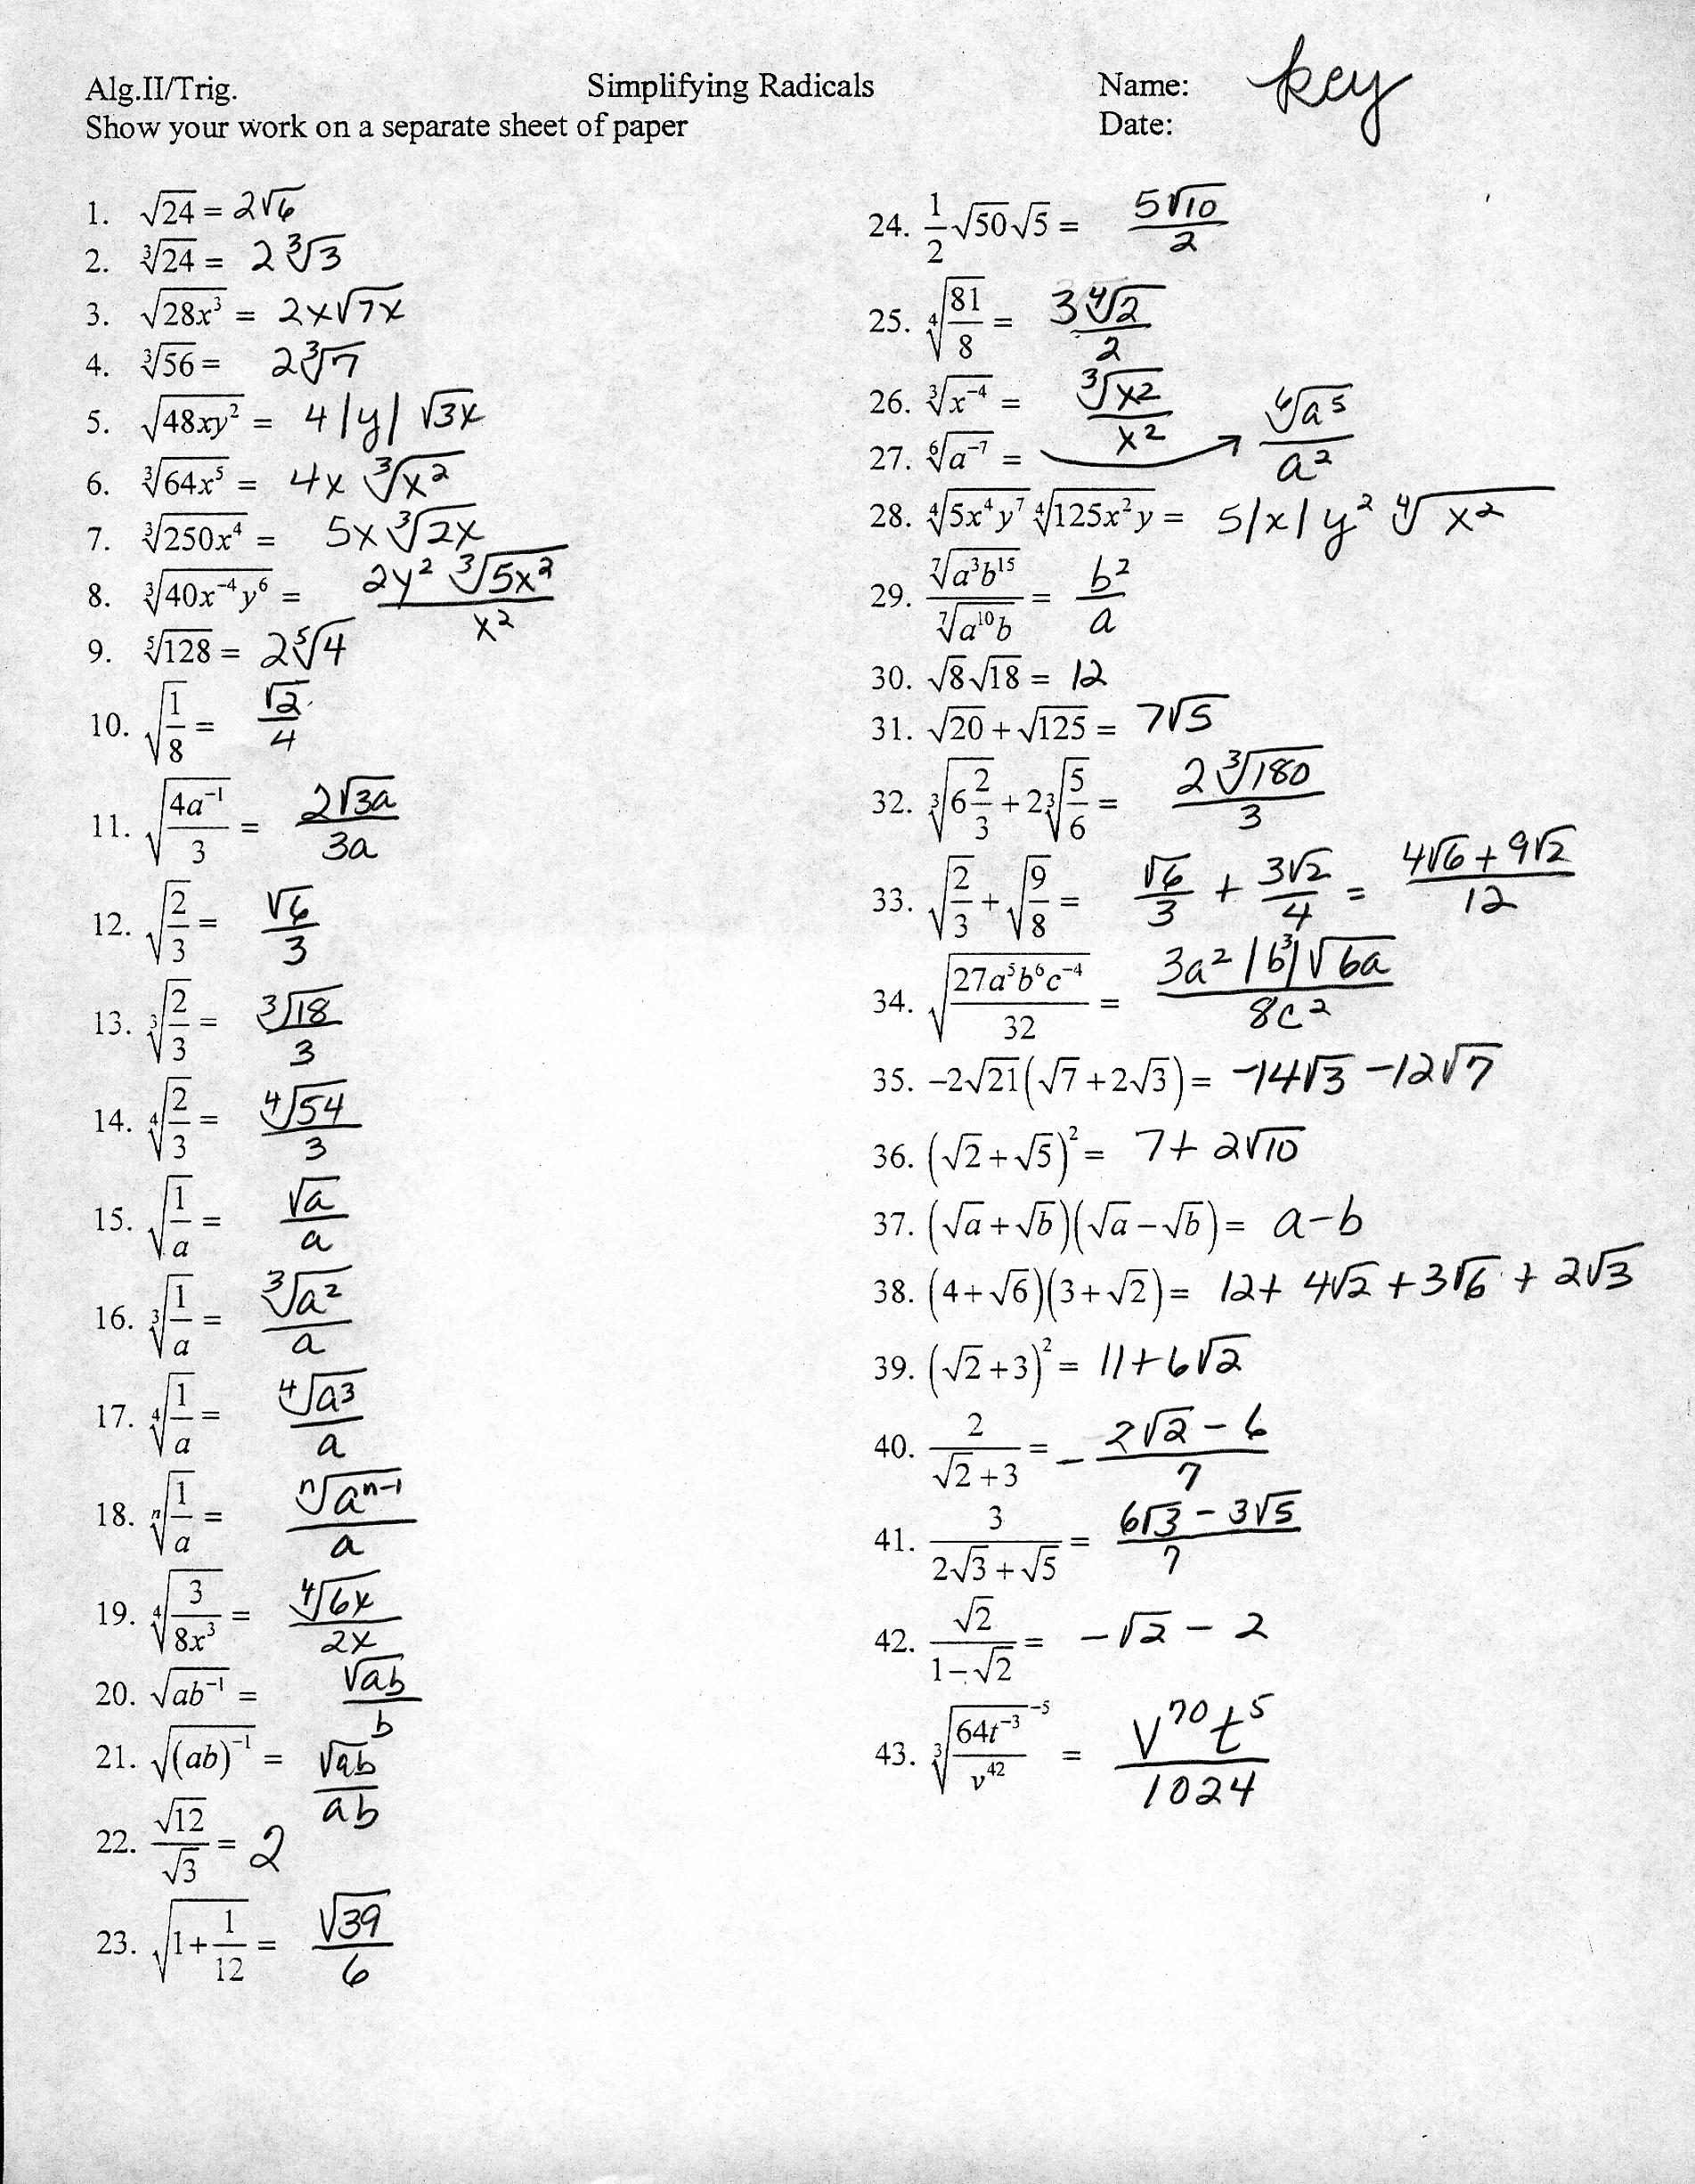 Alg.II/Trig. Simplifying Radicals Name: key
Show your work on a separate sheet of paper Date:
1. √24 = 2√6
2. ∛24 = 2∛3
3. √(28x³) = 2x√(7x)
4. ∛56 = 2∛7
5. √(48xy²) = 4|y|√(3x)
6. ∛(64x⁵) = 4x∛(x²)
7. ∛(250x⁴) = 5x∛(2x)
8. ∛(40x⁻⁴y⁶) = (2y²∛(5x²))/x²
9. ⁵√128 = 2⁵√4
10. √(1/8) = √2/4
11. √(4a⁻¹/3) = 2√(3a)/3a
12. √(2/3) = √6/3
13. ∛(2/3) = ∛18/3
14. ∜(2/3) = ∜54/3
15. √(1/a) = √a/a
16. ∛(1/a) = ∛(a²)/a
17. ∜(1/a) = ∜(a³)/a
18. ⁿ√(1/a) = ⁿ√(aⁿ⁻¹)/a
19. ∜(3/8x³) = ∜(6x)/2x
20. √(ab⁻¹) = √(ab)/b
21. √((ab)⁻¹) = √(ab)/ab
22. √12/√3 = 2
23. √(1+1/12) = √39/6
24. 1/2 √50√5 = 5√10/2
25. ∜(81/8) = 3∜2/2
26. ∛(x⁻⁴) = ∛(x²)/x²
27. ⁶√(a⁻⁷) = → ⁶√(a⁵)/a²
28. ∜(5x⁴y⁷) ∜(125x²y) = 5|x|y²∜(x²)
29. ⁷√(a³b¹⁵)/⁷√(a¹⁰b) = b²/a
30. √8√18 = 12
31. √20 + √125 = 7√5
32. ∛(6 2/3) + 2∛(5/6) = 2∛180/3
33. √(2/3) + √(9/8) = √6/3 + 3√2/4 = (4√6 + 9√2)/12
34. √(27a⁵b⁶c⁻⁴/32) = 3a²|b³|√(6a)/8c²
35. −2√21(√7 + 2√3) = −14√3 − 12√7
36. (√2 + √5)² = 7 + 2√10
37. (√a + √b)(√a − √b) = a − b
38. (4 + √6)(3 + √2) = 12 + 4√2 + 3√6 + 2√3
39. (√2 + 3)² = 11 + 6√2
40. 2/(√2 + 3) = − (2√2 − 6)/7
41. 3/(2√3 + √5) = (6√3 − 3√5)/7
42. √2/(1 − √2) = −√2 − 2
43. ∛(64t⁻³/v⁴²)⁻⁵ = v⁷⁰t⁵/1024